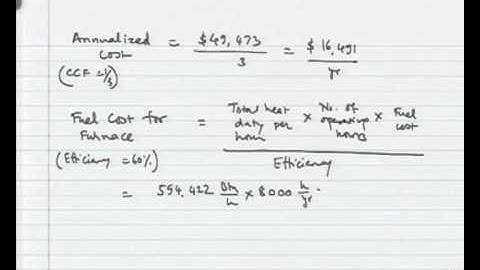 Annualized Cost = $49,473 / 3 = $16,491 / yr
(CCF = 1/3)
Fuel Cost for Furnace = Total heat duty per hour × No. of operating hours × Fuel cost / Efficiency
(Efficiency = 60%)
= 594,422 Btu/h × 8000 h/yr